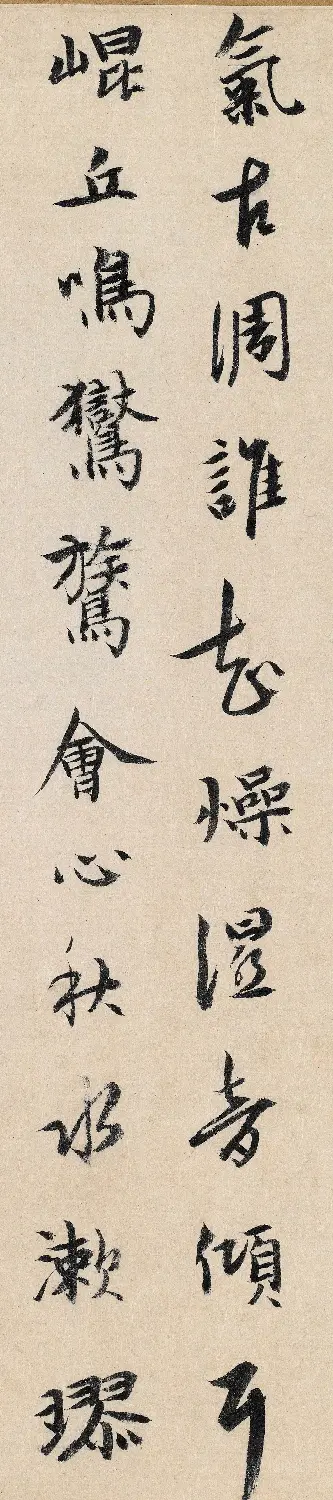 氣古調誰燥濕音傾耳
崐丘鳴鸑鷟會心秋水漱璆